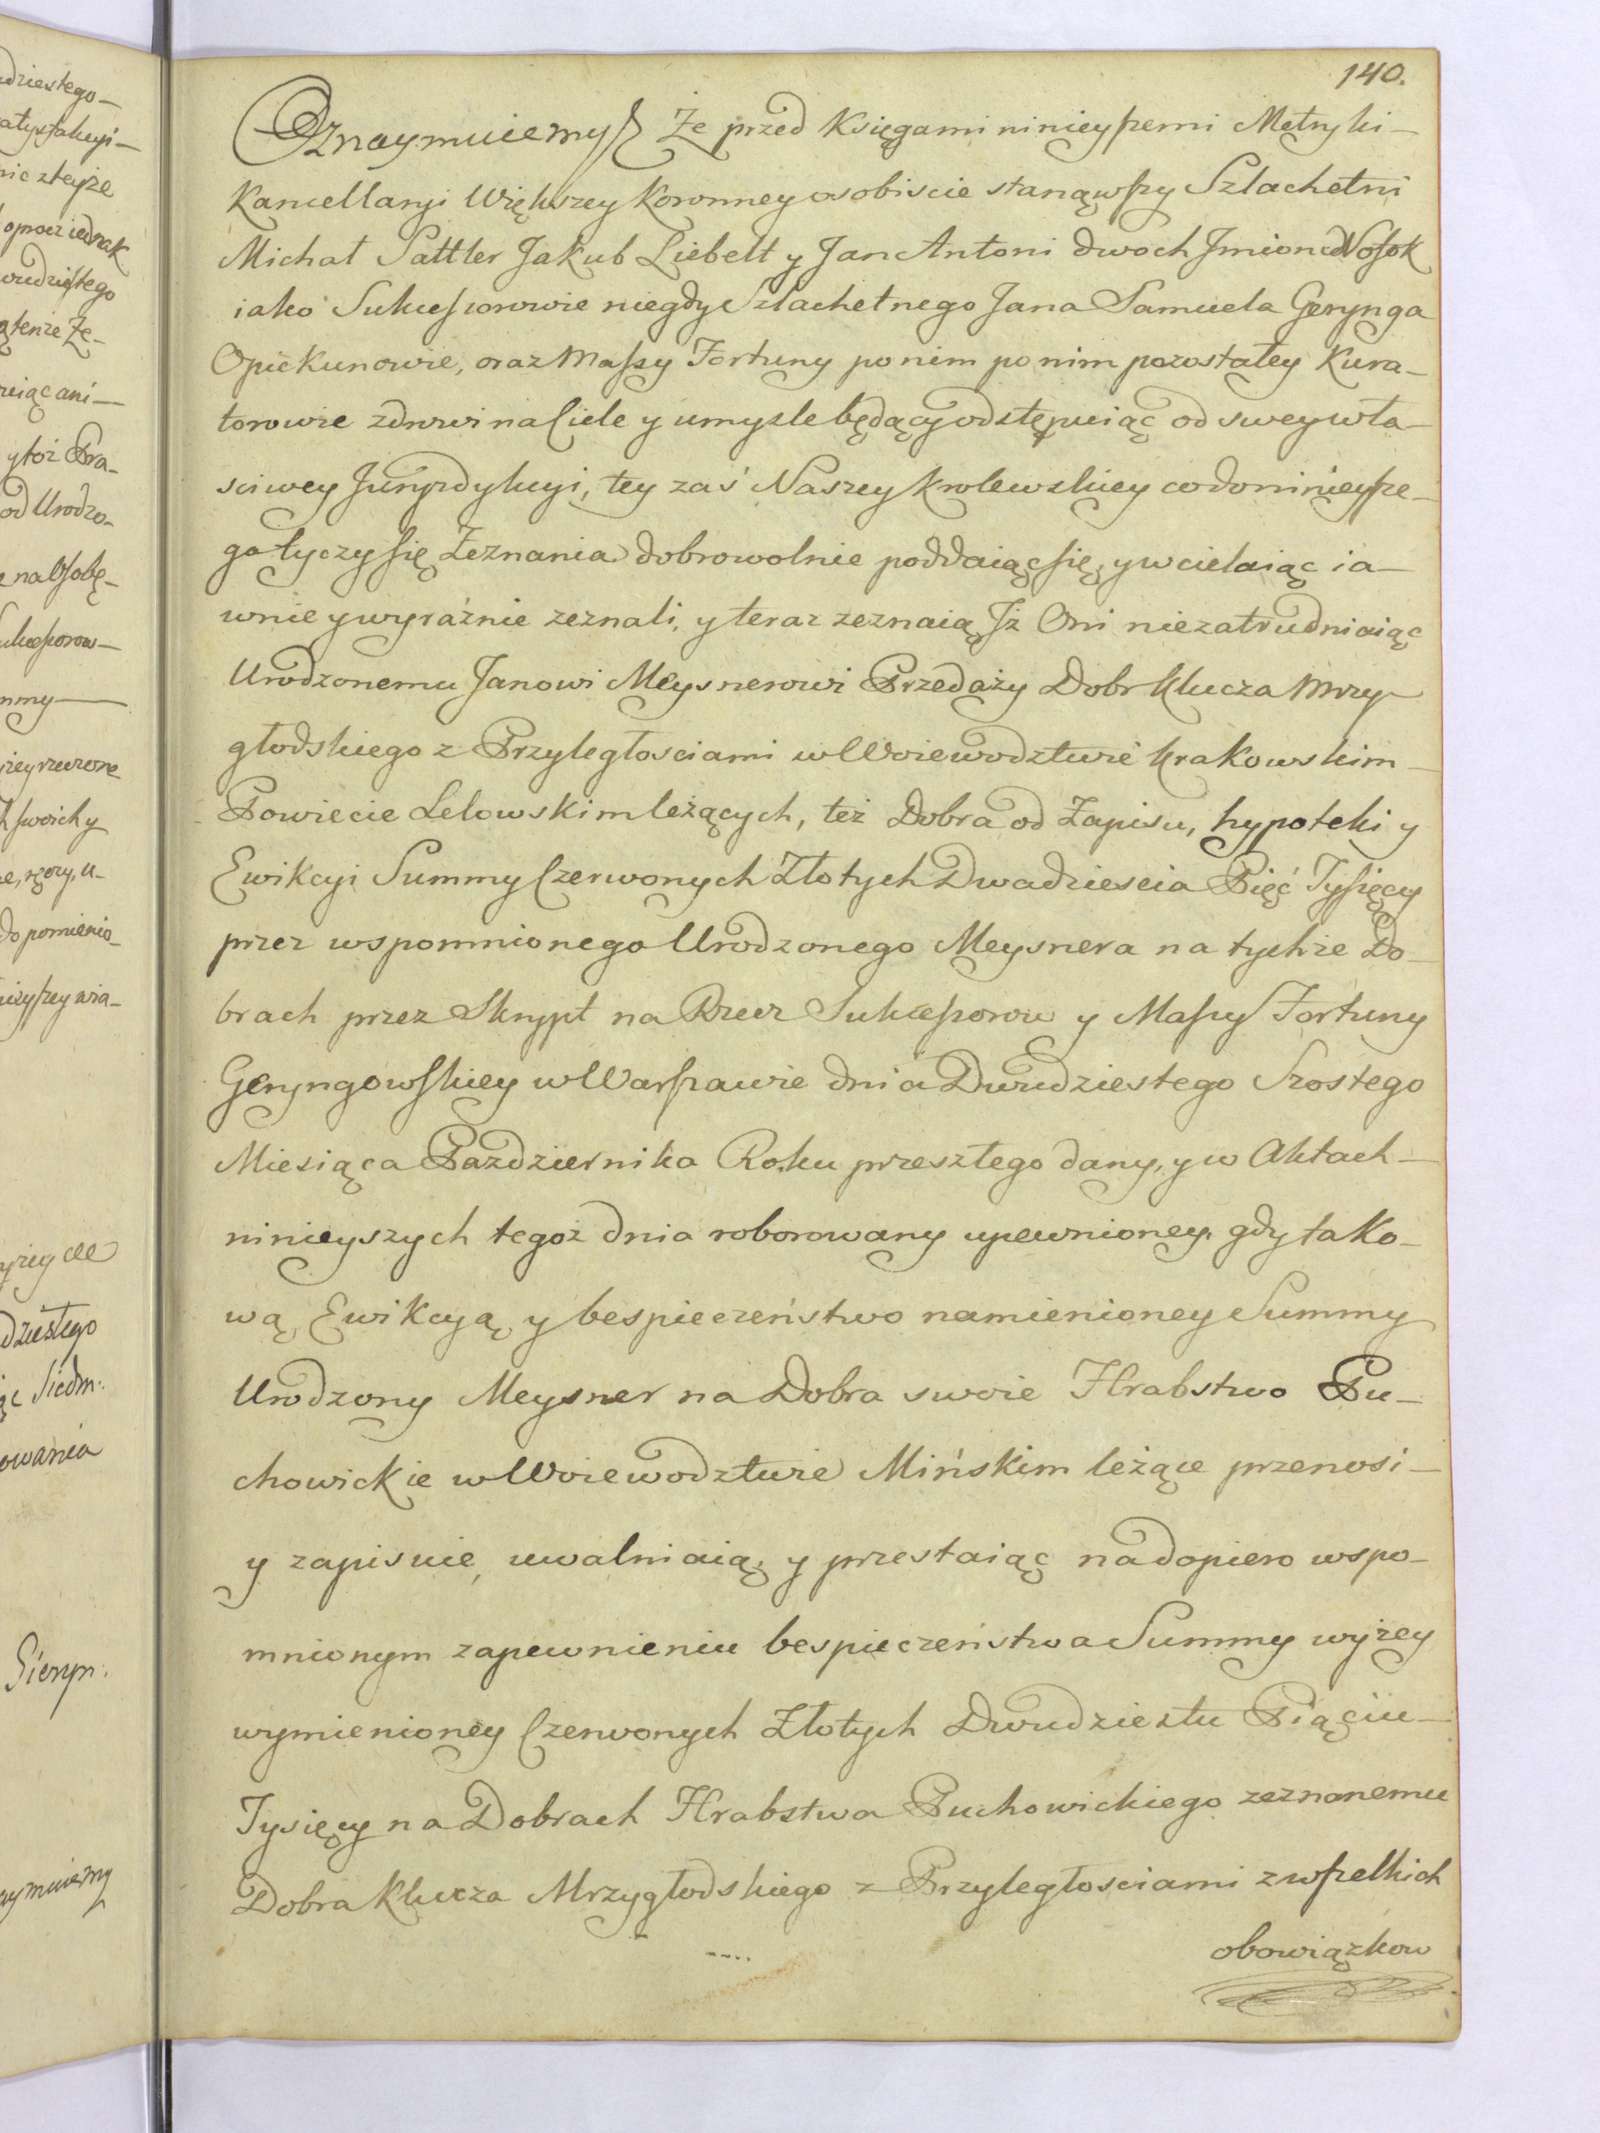 140.
Oznaymuiemy Że przed Księgami ninieyszemi Metryki
Kancellaryi Większey Koronney osobiscie stanąwszy Szlachetni
Michał Sattler Jakub Liebelt y Jan Antoni dwoch Jmion Nosok
iako Sukcessorowie niegdy Szlachetnego Jana Samuela Gerynga
Opiekunowie, oraz Massy Fortuny po nim po nim pozostałey Kura-
torowie zdrowi na Ciele y umysle będący odstępuiąc od swey wła-
sciwey Juryzdykcyi, tey zaś Naszey Krolewskiey co do ninieysze-
go tyczy się Zeznania dobrowolnie poddaiąc się, y wcielaiąc ia-
wnie y wyraźnie zeznali, y teraz zeznaią Jż Oni niezatrudniaiąc
Urodzonemu Janowi Meysnerowi Przedaży Dobr Klucza Mrzy-
głodskiego z Przyległosciami w Woiewodztwie Krakowskim
Powiecie Lelowskim leżących, też Dobra od Zapisu, hypoteki y
Ewikcyi Summy Czerwonych Złotych Dwadziescia Pięć Tysięcy
przez wspomnionego Urodzonego Meysnera na tychże Do-
brach przez Skrypt na Rzecz Sukcessorow y Massy Fortuny
Geryngowskiey w Warszawie dnia Dwudziestego Szostego
Miesiąca Pazdziernika Roku przeszłego dany, y w Aktach
ninieyszych tegoż dnia roborowany upewnioney, gdy tako-
wą Ewikcyą y bespieczeństwo namienioney Summy
Urodzony Meysner na Dobra swoie Hrabstwo Pu-
chowickie w Woiewodztwie Mińskim leżące przenosi
y zapisuie, uwalniaią, y przestaiąc na dopiero wspo-
mnionym zapewnieniu bespieczeństwa Summy wyżey
wymienioney Czerwonych Złotych Dwudziestu Piąciu
Tysięcy na Dobrach Hrabstwa Puchowickiego zeznanemu
Dobra Klucza Mrzygłodskiego z Przyległosciami z wszelkich
obowiązkow